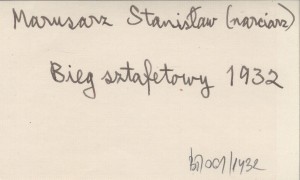 Marusarz Stanisław (narciarz)
Bieg sztafetowy 1932
/001/1932